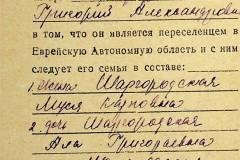 Григорий Александрович
в том, что он является переселенцем в
Еврейскую Автономную область и с ним
следует его семья в составе:
1. жена Шаргородская
Муся
2. дочь Шаргородская
Ала Григорьевна